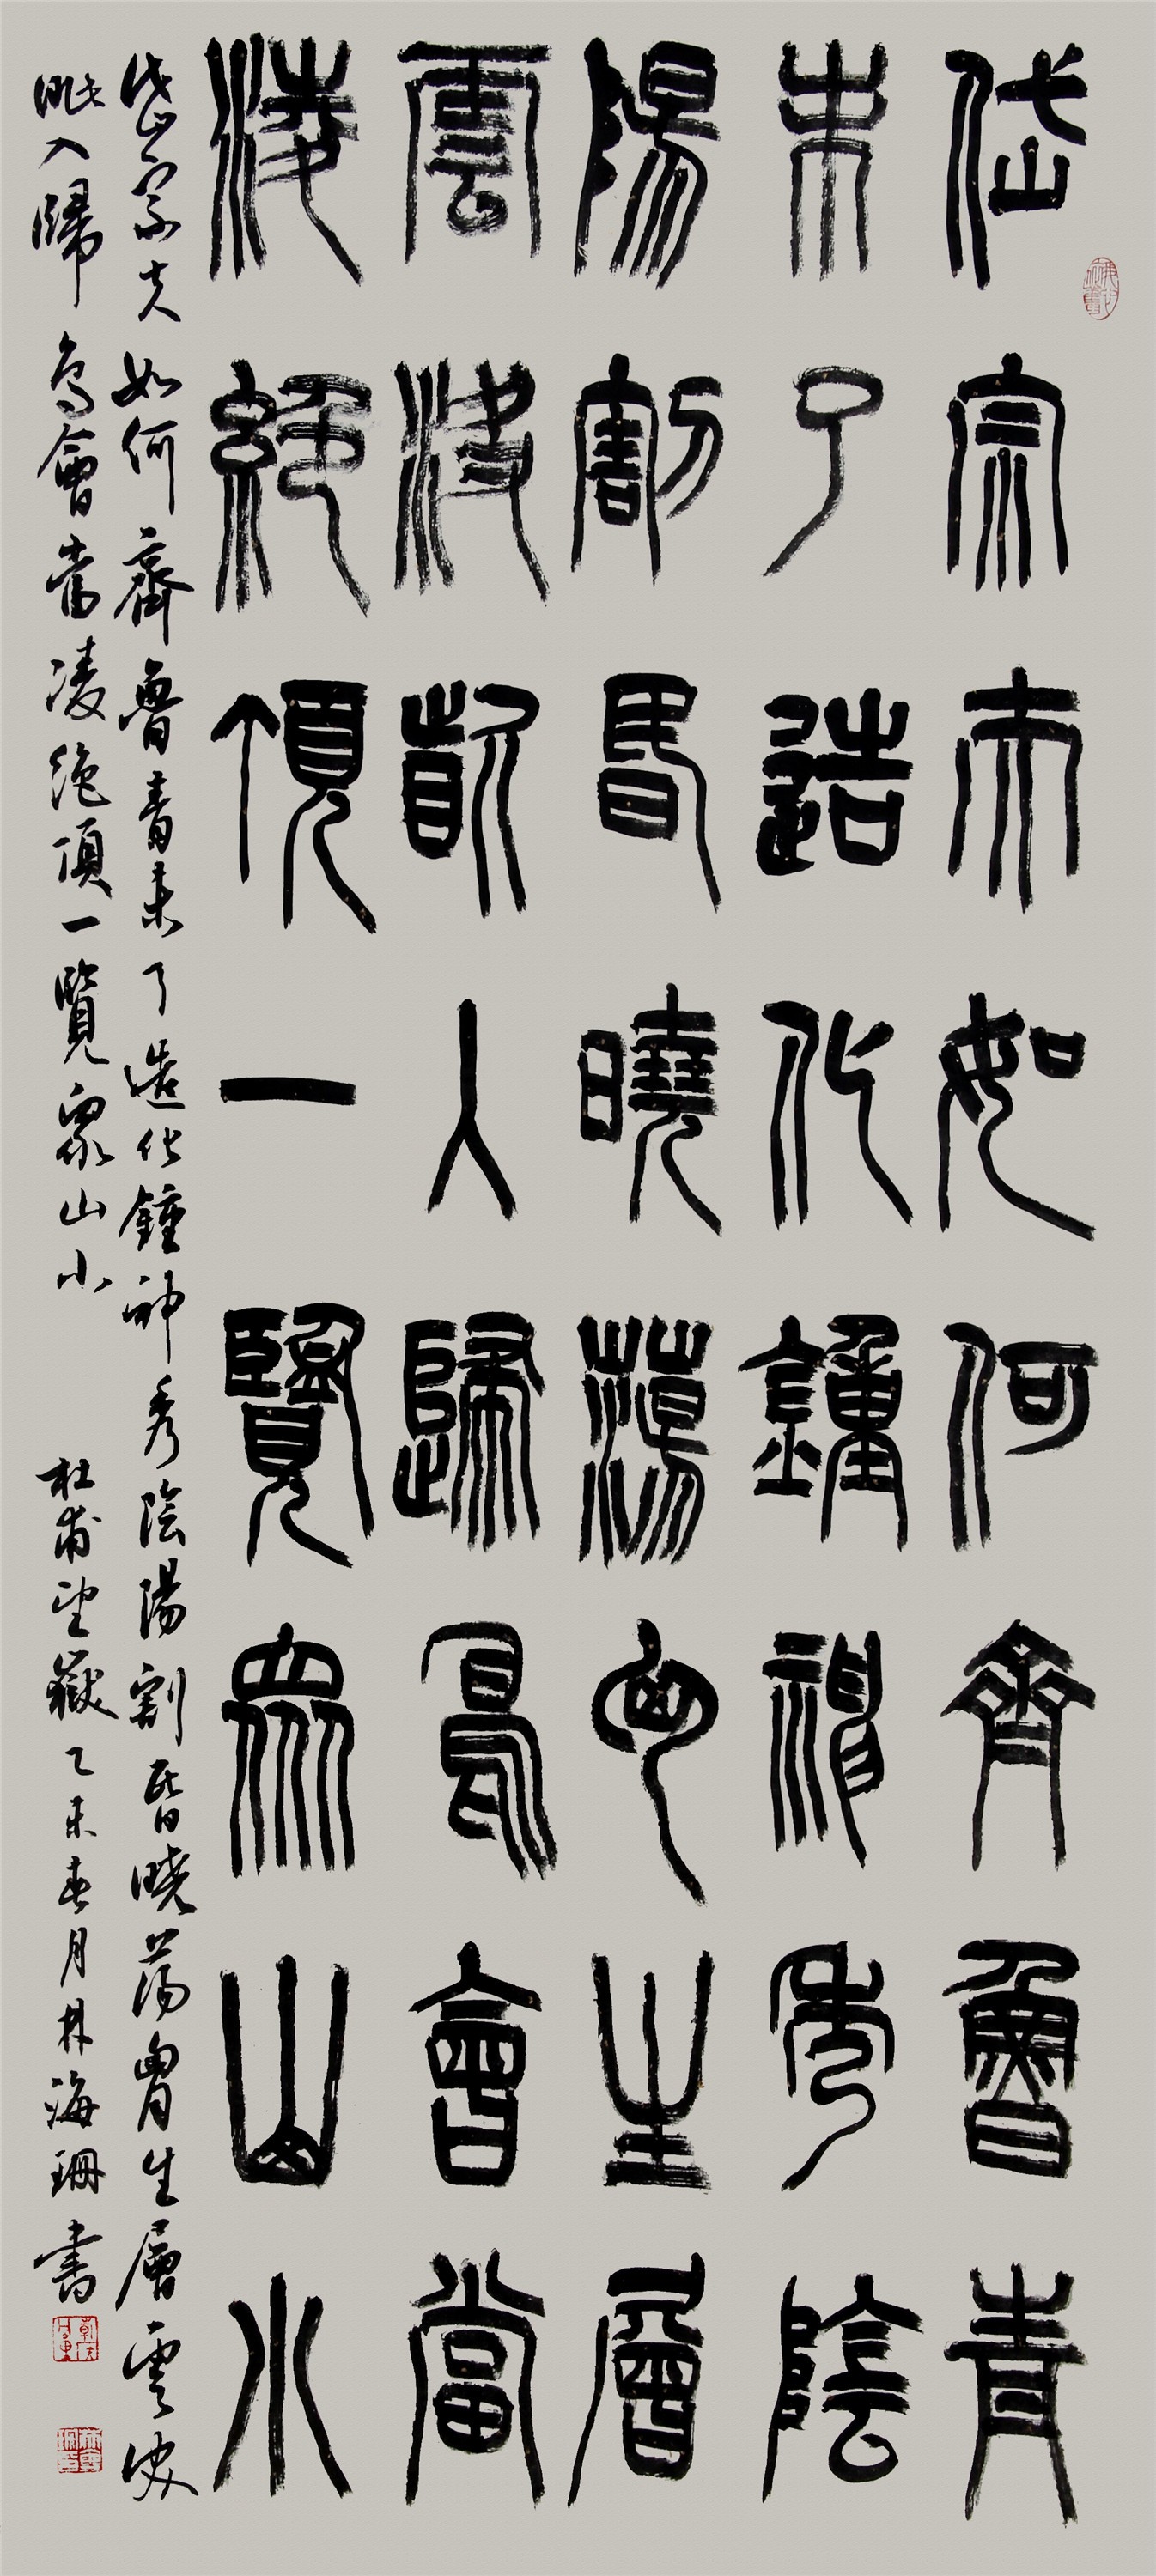 岱宗夫如何齊魯青
未了造化鍾神秀陰
陽割昏曉蕩胷生層
雲決眥入歸鳥會當
凌絕頂一覽眾山小
岱宗夫如何齊魯青未了造化鍾神秀陰陽割昏曉蕩胷生層雲決
眦入歸鳥會當凌絕頂一覽眾山小
杜甫望嶽乙未春月林海珊書